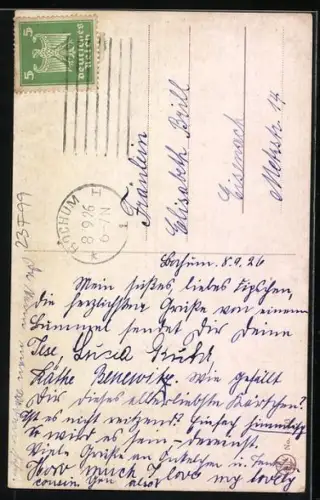 5 5
Deutsches
Reich
BOCHUM
8.9.26
6-7N
1
Fräulein
Elisabeth Brill
Eisenach
Metzstr. 14
23F99
Bochum. 8.9.26
Mein süßes, liebes
die herzlichsten Grüße von einem
Bummel sendet Dir Deine
Käthe Benewitz. Wie gefällt
Dir dieses allerliebste Kärtchen?
Ist es nicht reizend? Einfach himmlisch
So wird es sein - dereinst.
Viele Grüße an
How much I love my lovely
cousin